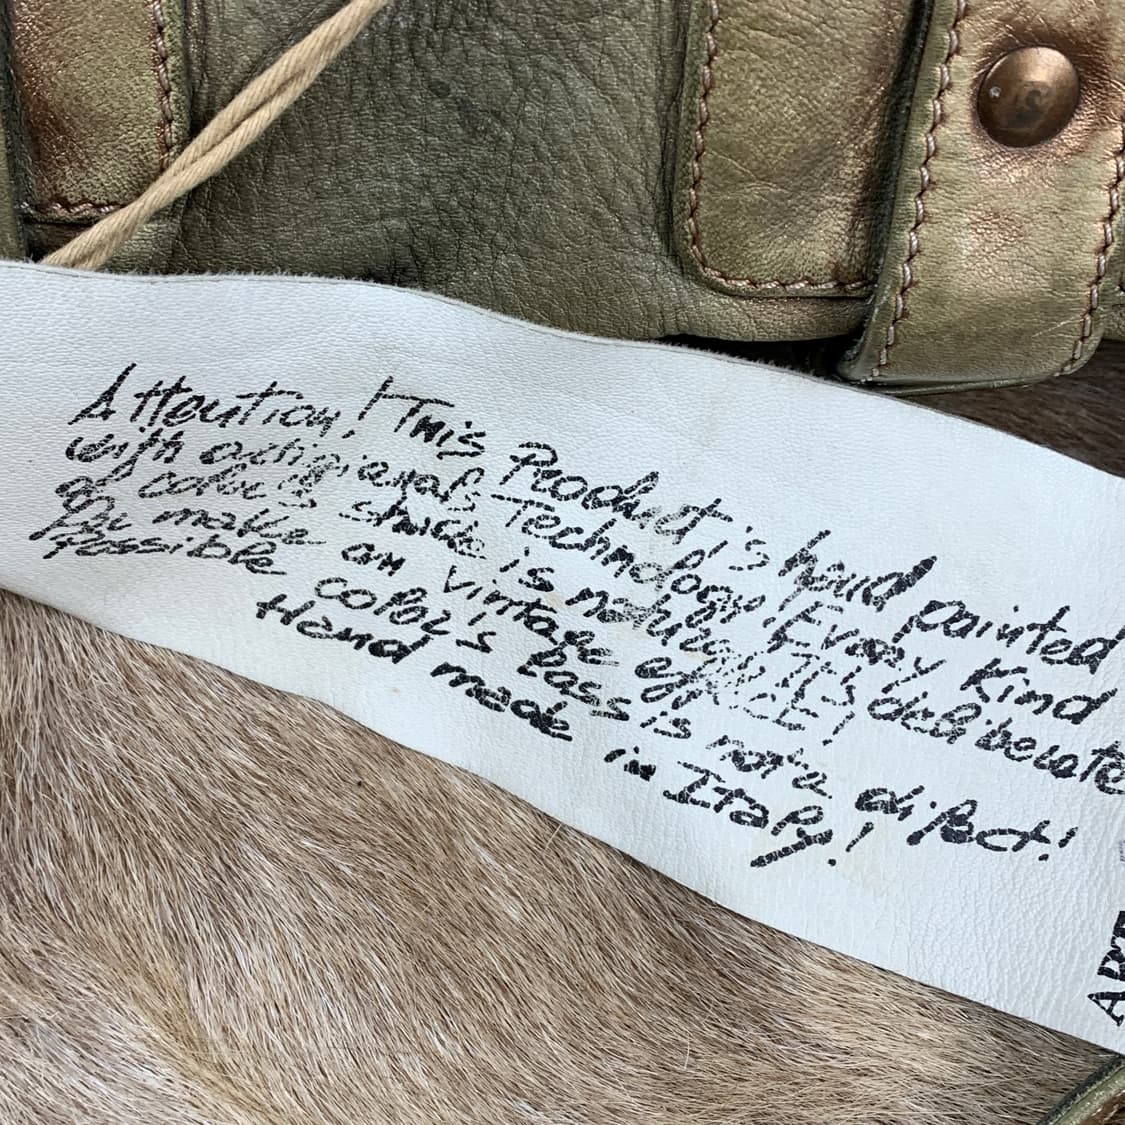 Attention! This Product is hand painted
with artigianals-Technology. Every Kind
of color's shade is IT's deliberate
for make an vintage
Possible color's loss is not a difect!
Hand made in Italy!